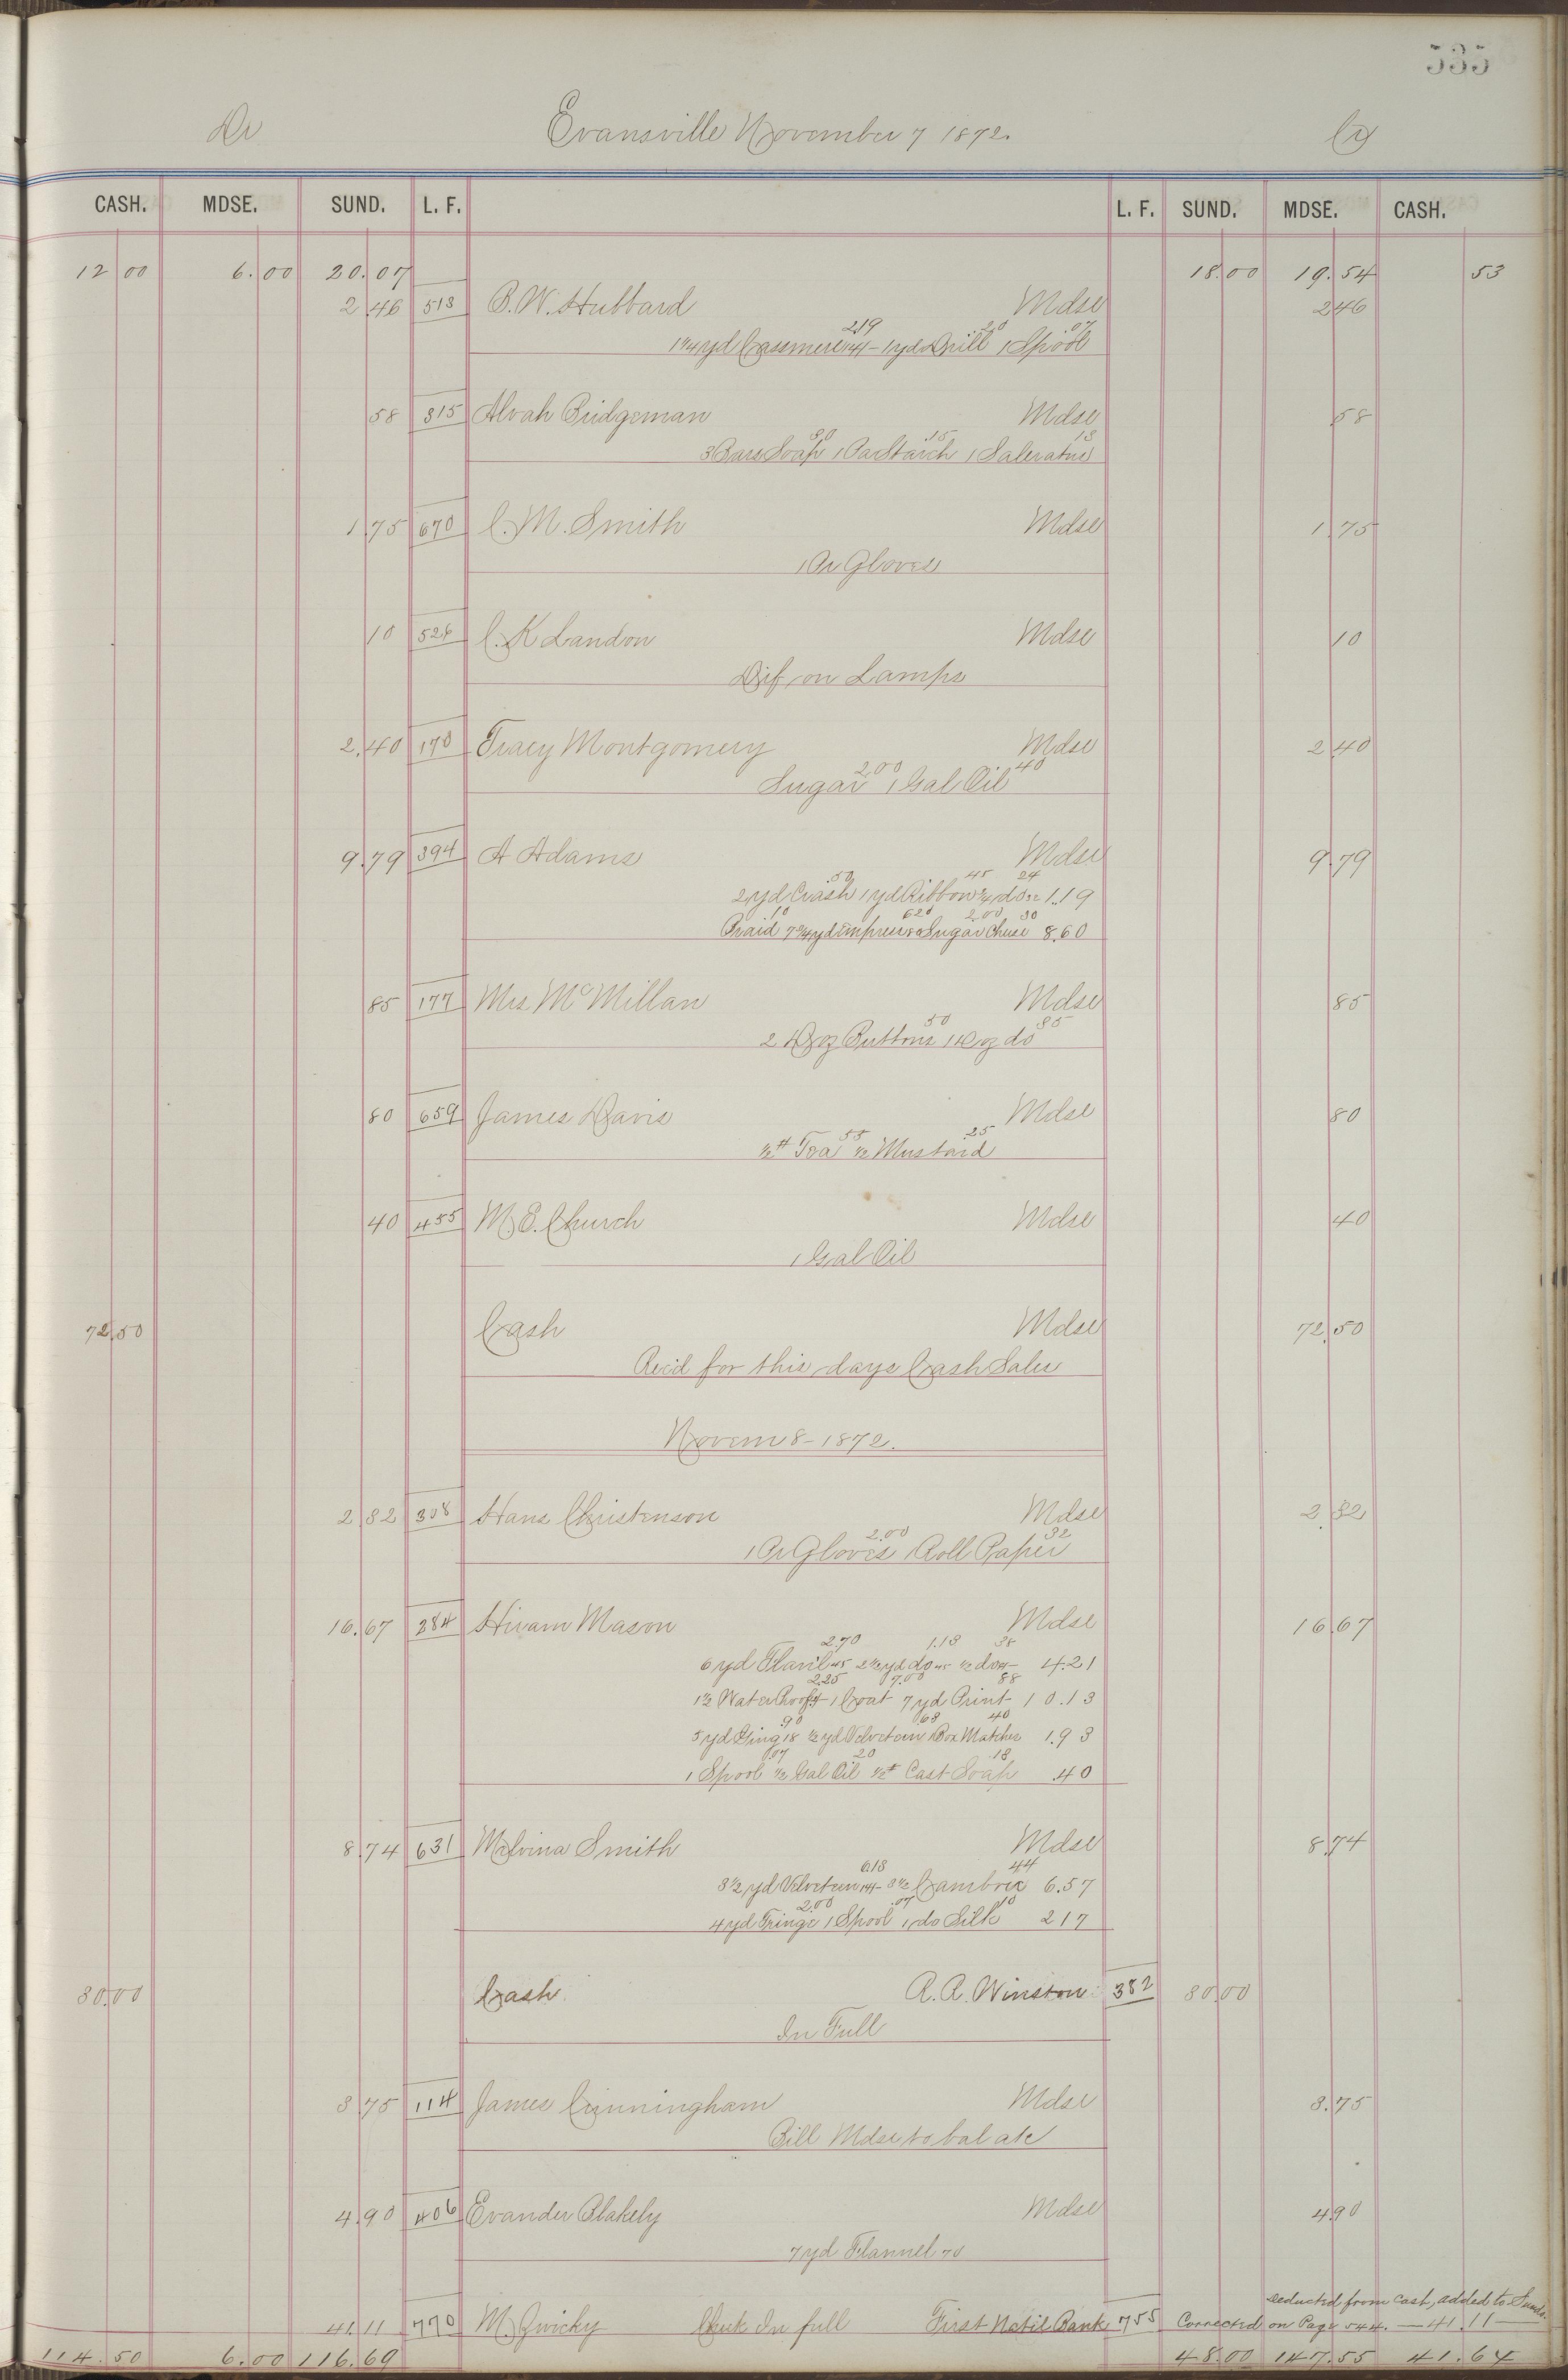 535
Dr Evansville November 7 1872. Cr
CASH. MDSE. SUND. L. F. L. F. SUND. MDSE. CASH.
12 00 6.00 20.07 18.00 19.54 53
2 46 513 B. W. Hubbard Mdse 2 46
2.19 20 07
1 1/4 yd Cassmere 14/- 1 yd Drill 1 Spool
58 315 Alvah Bridgeman Mdse 58
30 .15 13
3 Bars Soap 1 Pa Starch 1 Saleratus
1.75 670 C. M. Smith Mdse 1.75
1 Pr Gloves
10 526 C. K Landon Mdse 10
Dif on Lamps
2.40 170 Tracy Montgomery Mdse 2 40
2.00 40
Sugar 1 Gal Oil
9.79 394 A Adams Mdse 9.79
.50 45 24
2 yd Crash 1 yd Ribbon 3/4 do 32 1.19
10 620 2.00 30
Braid 7 3/4 yd Impress Sugar Chese 8.60
85 177 Mrs McMillan Mdse 85
50 35
2 Doz Buttons 1 Doz do
80 659 James Davis Mdse 80
55 25
1/2 # Tea 1/2 Mustard
40 455 M. E. Church Mdse 40
1 Gal Oil
72.50 Cash Mdse 72.50
Rec'd for this days Cash Sales
Novem 8 - 1872.
2 32 308 Hans Christenson Mdse 2.32
2.00 32
1 Pr Gloves 1 Roll Paper
16.67 284 Hiram Mason Mdse 16.67
2.70 1.13 38
6 yd Flanl 45 2 1/2 yd do 45 1/2 do 6/- 4.21
2.25 7.00 88
1 1/2 Water Proof 1 Coat 7 yd Print 10.13
.90 .63 40
5 yd Ging 18 1/2 yd Velveteen 1 Box Matches 1.93
.07 20 .13
1 Spool 1/2 Gal Oil 1/2 # Cast Soap .40
8.74 631 Melvina Smith Mdse 8.74
6.13 44
3 1/2 yd Velveteen 14/- 3 1/2 Cambric 6.57
2.00 .07 10
4 yd Fringe 1 Spool 1 do Silk 2 17
30.00 Cash. R. R. Winston 382 30.00
In Full
3 75 114 James Cunningham Mdse 3.75
Bill Mdse to bal a/c
4.90 406 Evander Blakely Mdse 4.90
7 yd Flannel 70
deducted from cash, added to Sunds.
41.11 770 M. Zwicky Check In full First Natil Bank 755 Corrected on Page 544. — 41.11 —
114.50 6.00 116.69 48.00 147.55 41.64